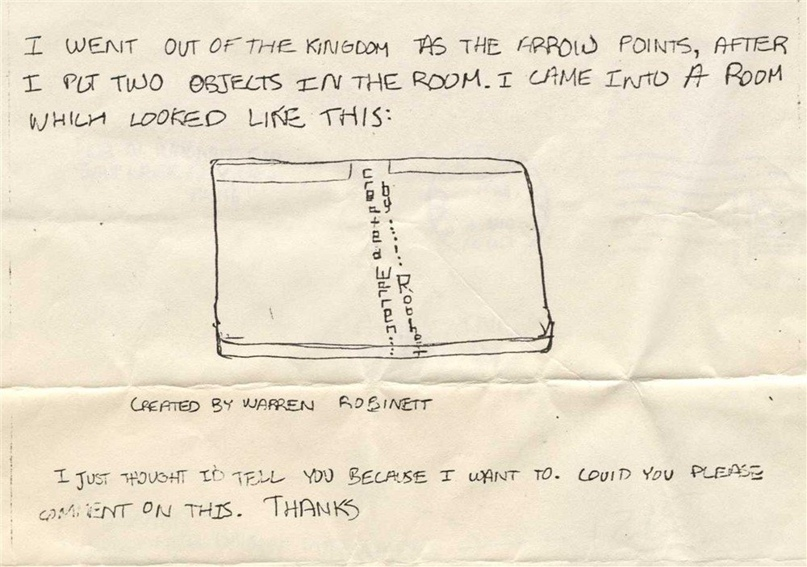 I WENT OUT OF THE KINGDOM AS THE ARROW POINTS, AFTER
I PUT TWO OBJECTS IN THE ROOM. I CAME INTO A ROOM
WHICH LOOKED LIKE THIS:
Created
by
Warren
CREATED BY WARREN ROBINETT
I JUST THOUGHT I'D TELL YOU BECAUSE I WANT TO. COULD YOU PLEASE
COMMENT ON THIS. THANKS